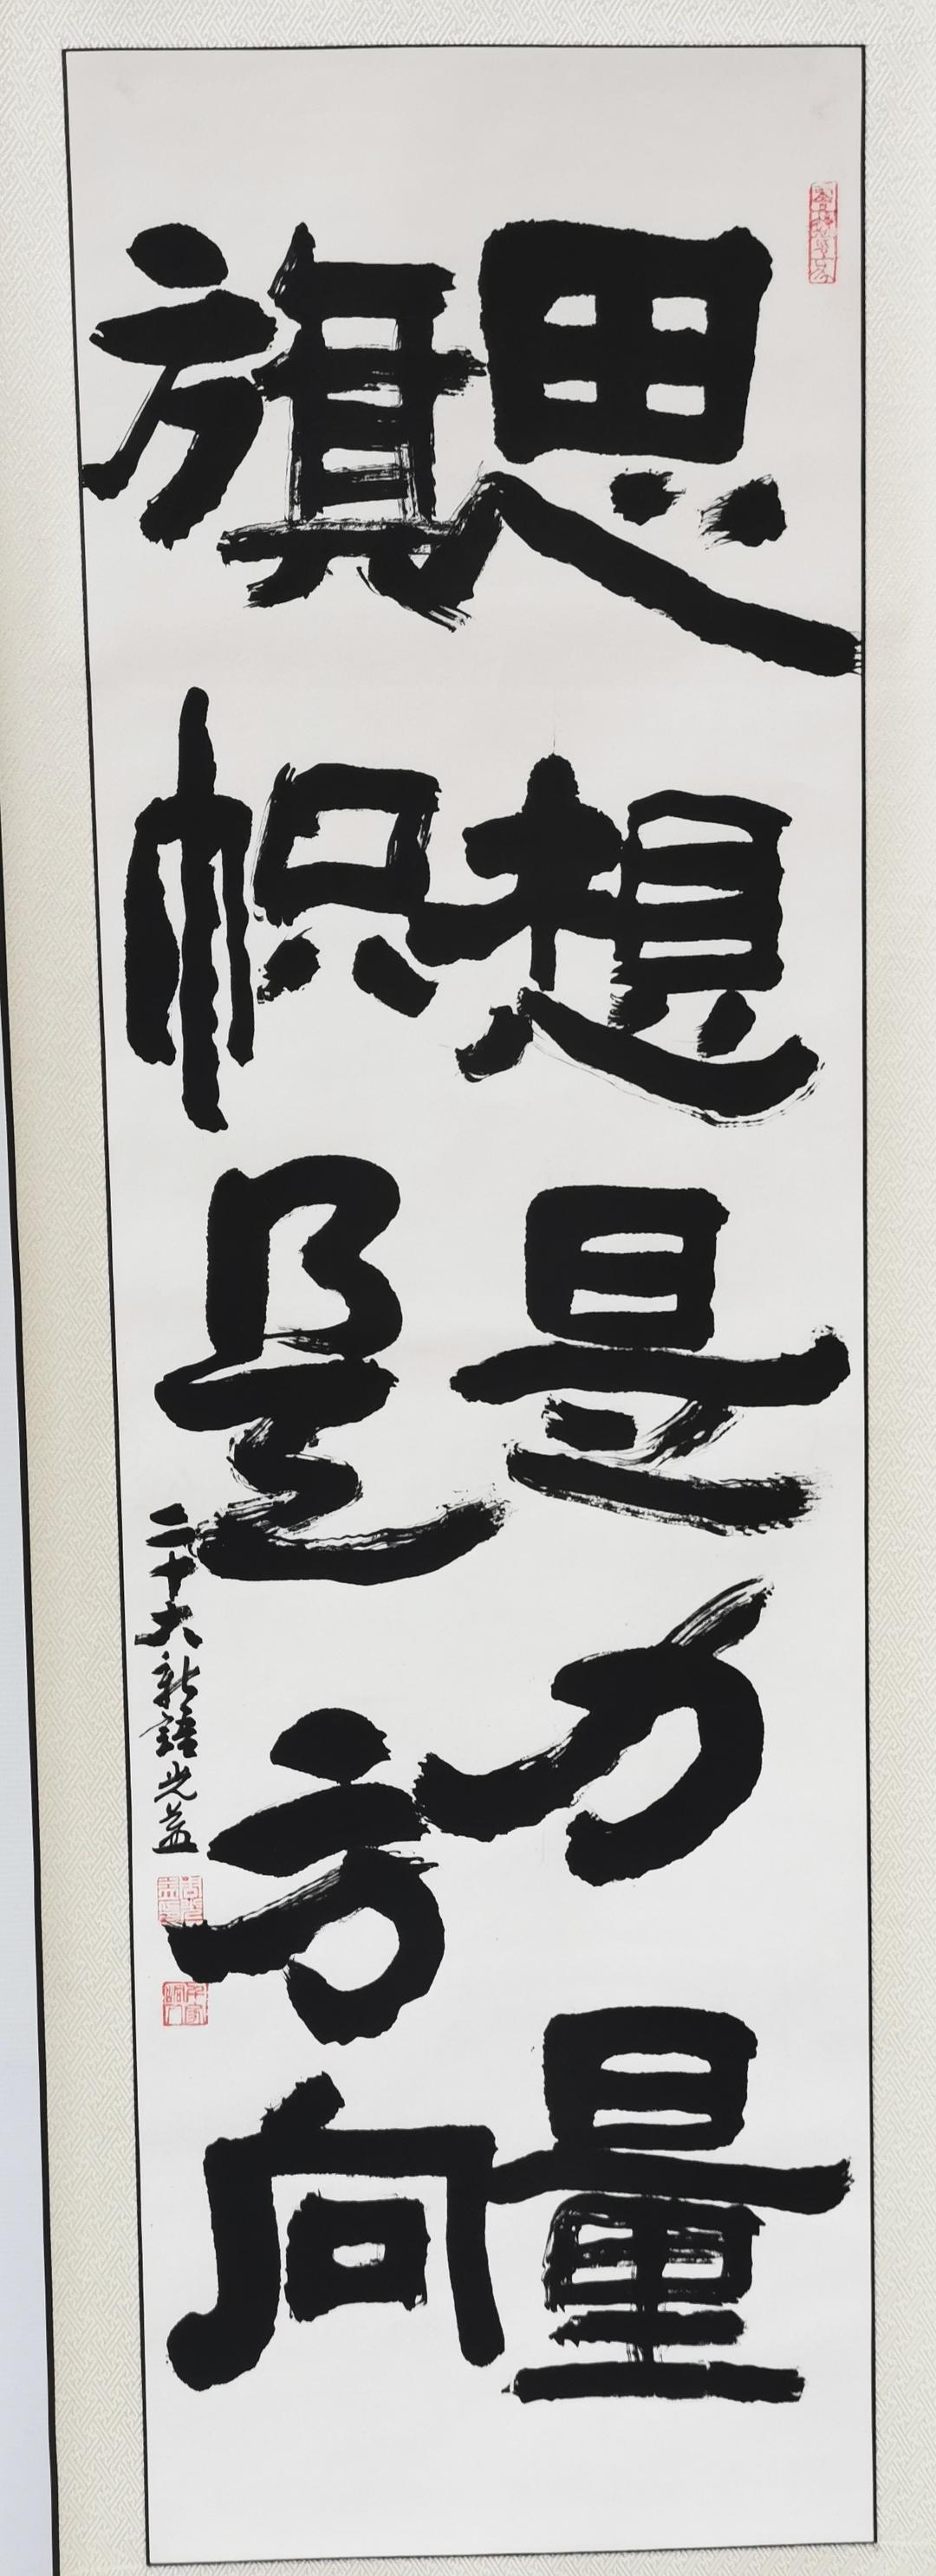 思想是力量
旗帜是方向
二十大新语光益